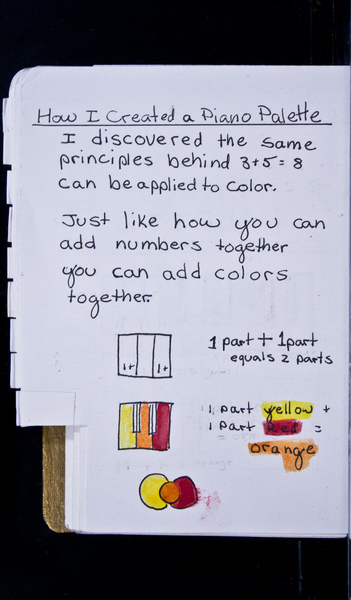 How I Created a Piano Palette
I discovered the same
principles behind 3+5=8
can be applied to color.
Just like how you can
add numbers together
you can add colors
together.
1 part + 1 part
equals 2 parts
1+ 1+
1 part yellow +
1 part Red =
orange